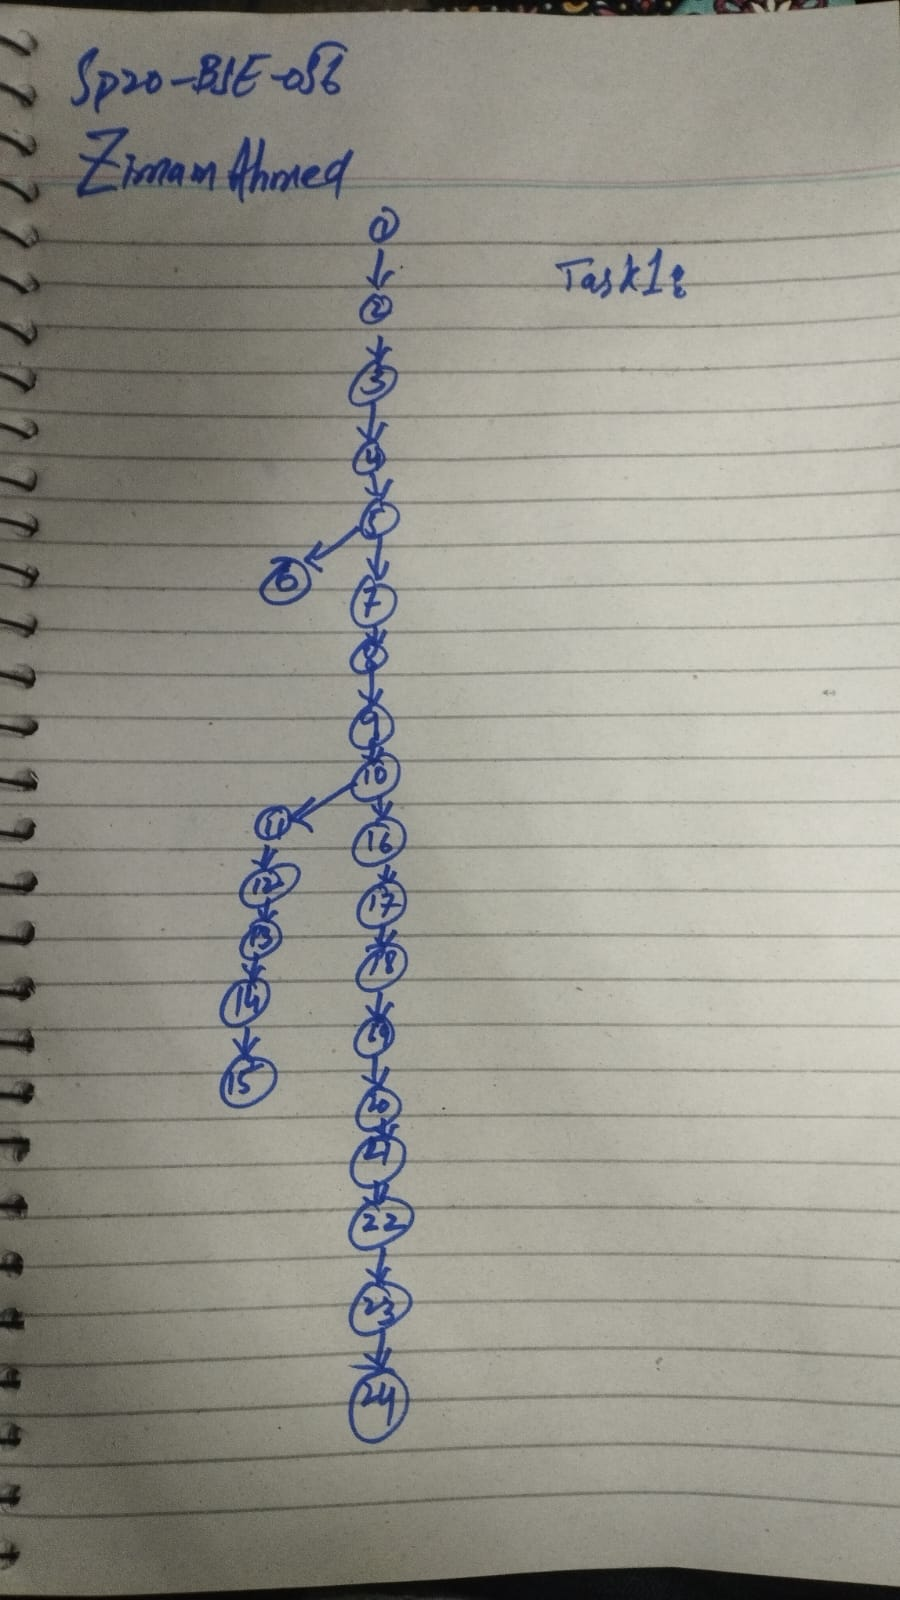 Sp20-BSE-056
Zimam Ahmed
1
Task1:
2
3
4
5
6
7
8
9
10
11
16
12
17
13
18
14
19
15
20
21
22
23
24